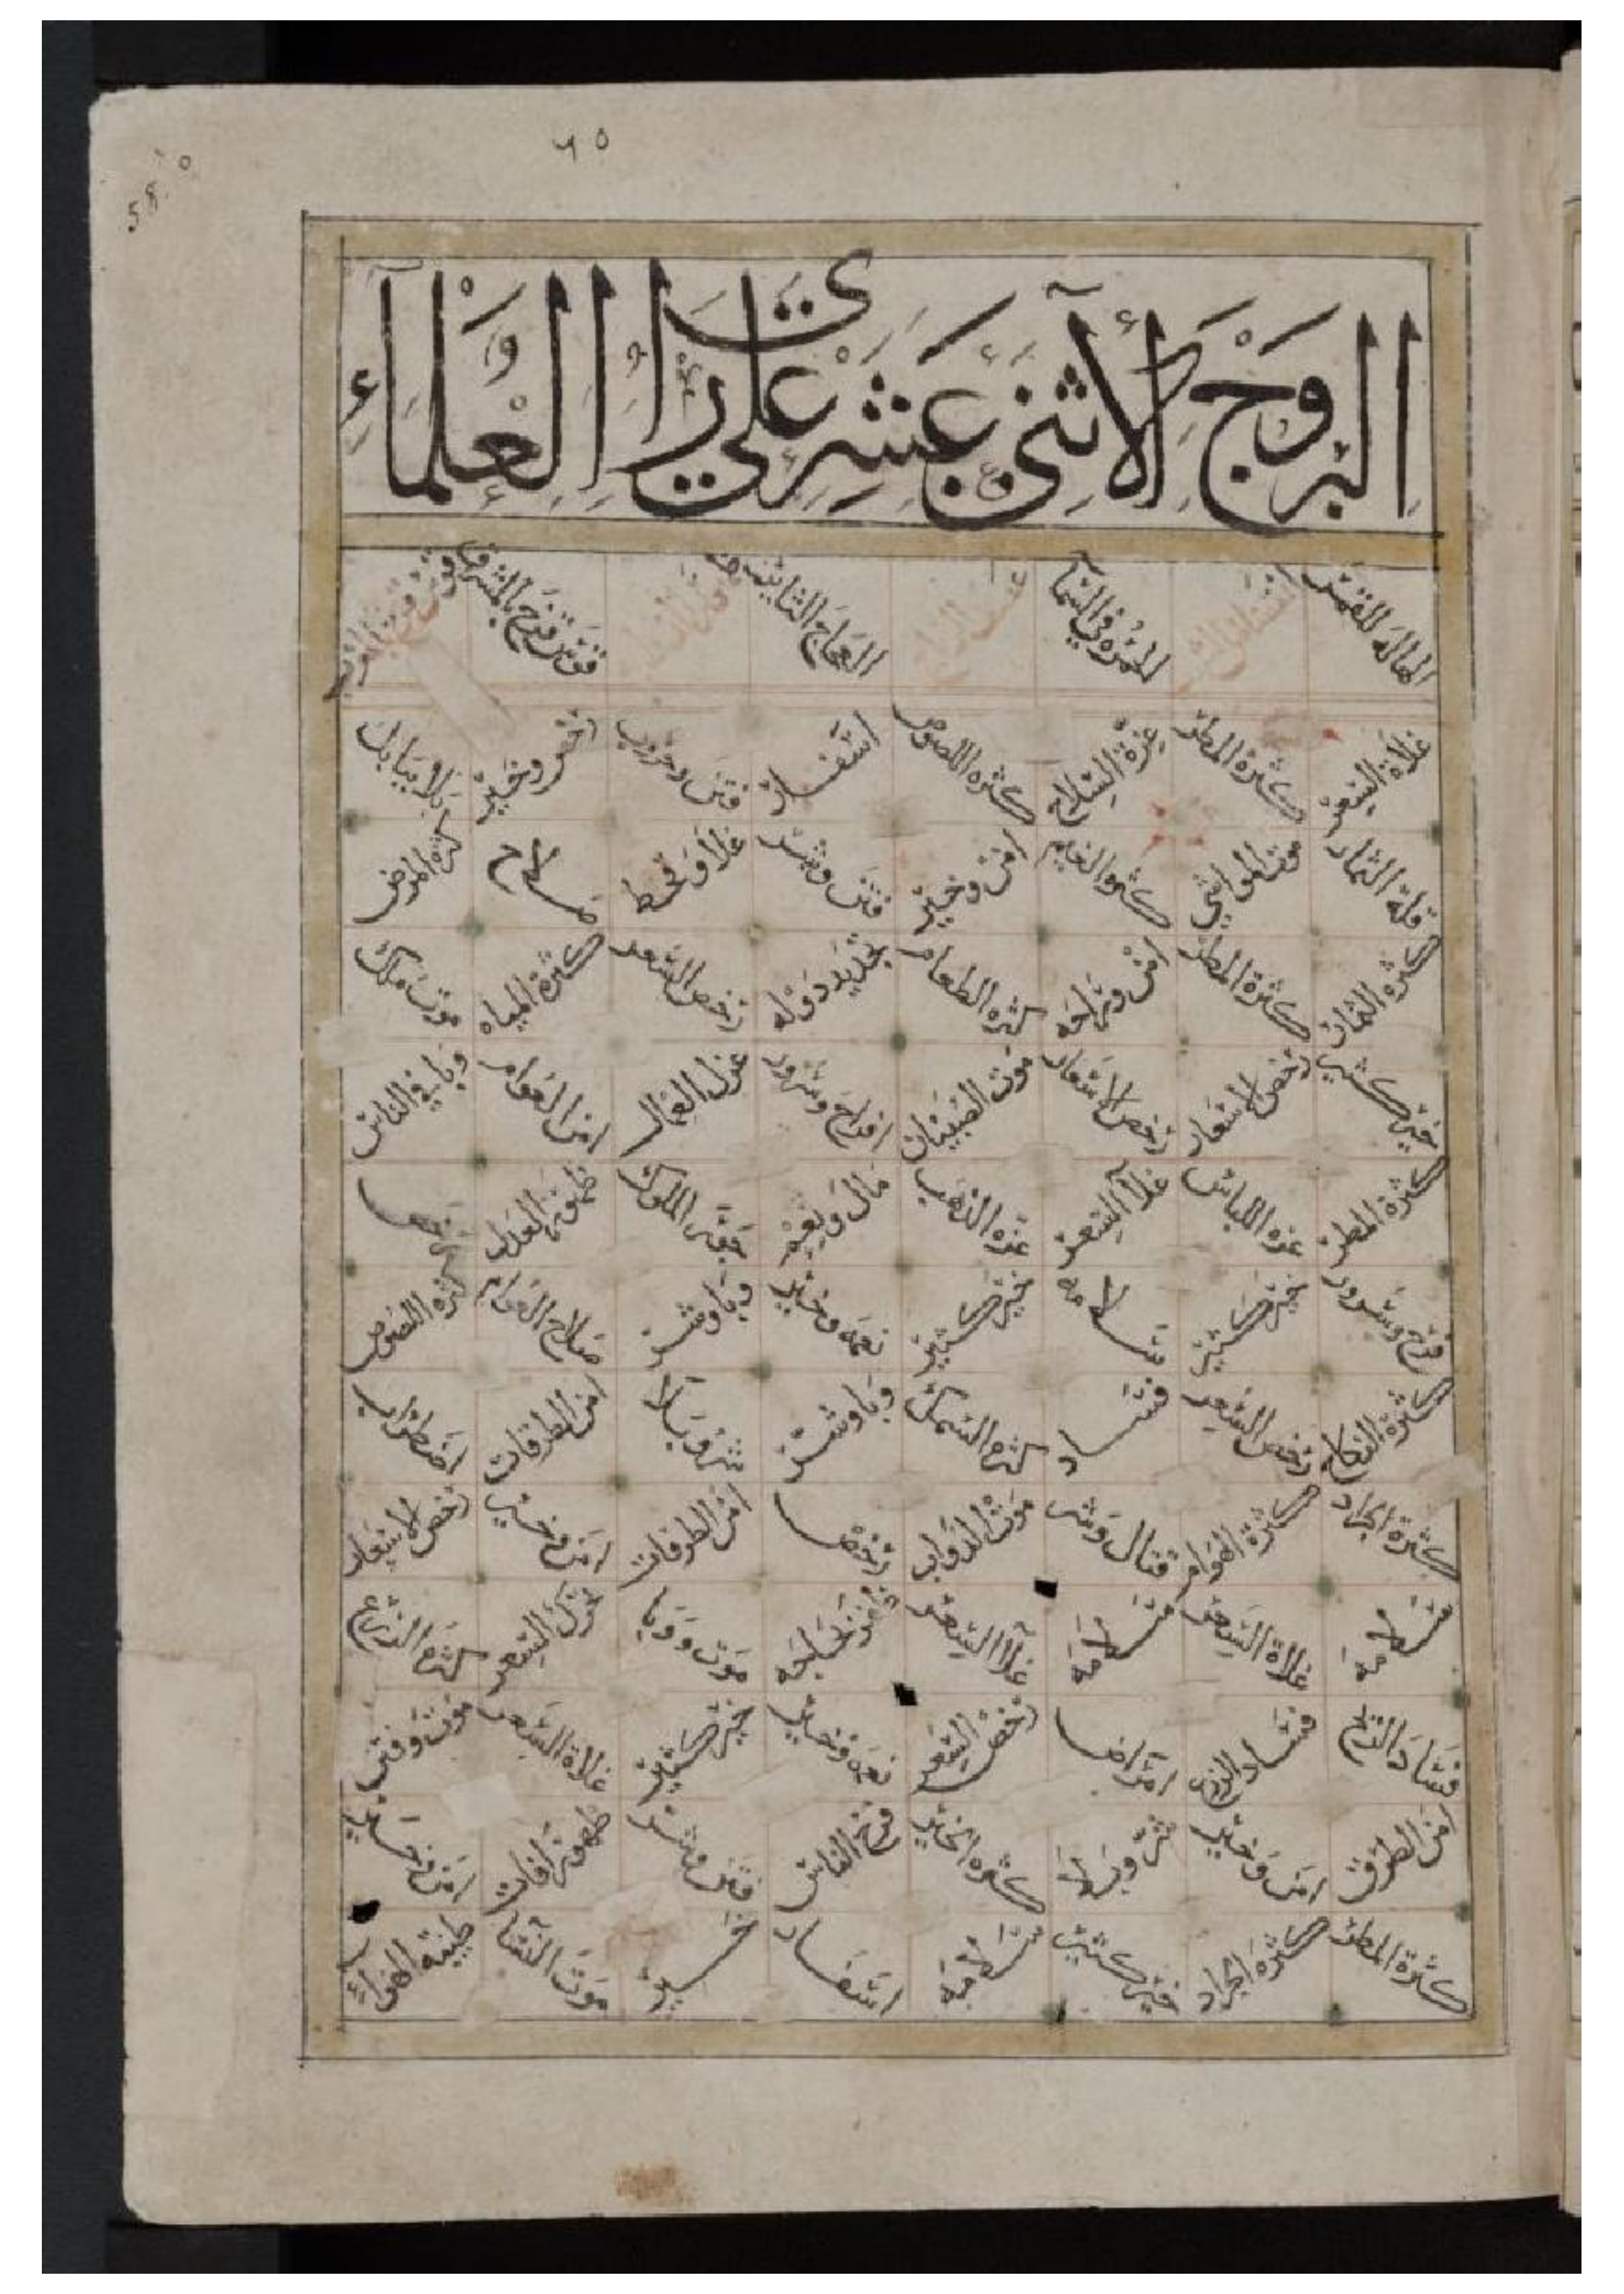 ٦٥
58
البروج الاثني عشر علي راي العلماء
الهالة للقمر الحمره في السما العجاج الثابتيه قوس قزح بالمشرق
غلاة السعر كثرة المطر عزة السلاح كثره اللصوص استفساد فتن وحروب رخص وخير بلاء ببابل
قلة الثمار موت المواشي كثره الغنم امن وخير فتن وشر غلا وقحط صلاح كثره المرض
كثرة الثمار كثرة المطر امن وراحه كثره الطعام تجديد دوله رخص السعر كثرة المياه موت ملك
خير كثير رخص الاسعار رخص الاسعار موت الصبيان افراح وسرور عزل العمال امن العوام وبا في الناس
كثرة المطر عزه اللباس غلا السعر عزه الذهب مال ونعيم الملوك ظهور العدل رخص
فرح وسرور خير كثير سلامه خير كثير نعمه وخير وبا وشر صلاح العوام كثره اللصوص
كثرة النكاح رخص السعر فساد كثره السمك وبا وشر شر وبلا امن الطرقات اضطراب
كثرة الجراد كثرة الهوام قتال وشر موت الدواب رخص امن الطرقات امن وخير رخص الاسعار
سلامة غلاة السعر سلامة غلا السعر موت ووبا السعر كثره الزرع
فساد الزرع فساد الزرع امراض رخص السعر نعمه وخير خير كثير غلاة السعر موت وفتن
امن الطرق امن وخير شر وبلا كثره الخير فرح الناس فتن وشر ظهور آفات امن وخير
كثرة المطر كثرة الجراد خير كثير سلامة استفساد خير موت النسا طيبة الهواء